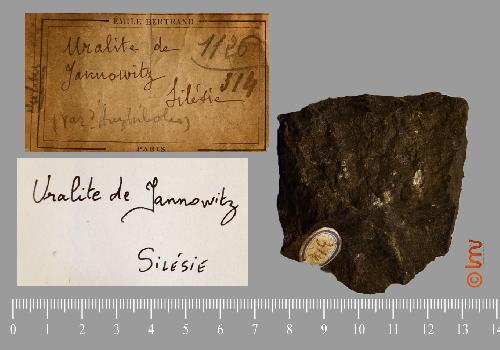 ÉMILE BERTRAND
Uralite de 1126
Jannowitz
Silésie 314
PARIS
Uralite de Jannowitz
SILÉSIE
314
0 1 2 3 4 5 6 7 8 9 10 11 12 13 14